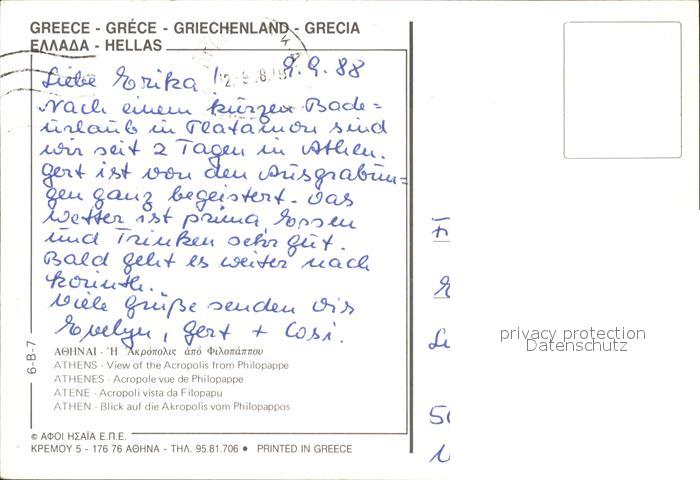 GREECE - GRÉCE - GRIECHENLAND - GRECIA
ΕΛΛΑΔΑ - HELLAS
Liebe Erika! 9.9.88
Nach einem kurzen Bade=
urlaub in Platamon sind
wir seit 2 Tagen in Athen.
Gert ist von den Ausgrabun=
gen ganz begeistert. Das
Wetter ist prima, Essen
und Trinken sehr gut.
Bald geht es weiter nach
Korinth.
Viele Grüße senden Dir
Evelyn, Gert + Cosi.
6-B-7
ΑΘΗΝΑΙ - Ἡ Ἀκρόπολις ἀπό Φιλοπάππου
ATHENS - View of the Acropolis from Philopappe
ATHENES - Acropole vue de Philopappe
ATENE - Acropoli vista da Filopapu
ATHEN - Blick auf die Akropolis vom Philopappos
© ΑΦΟΙ ΗΣΑΪΑ Ε.Π.Ε.
ΚΡΕΜΟΥ 5 - 176 76 ΑΘΗΝΑ - ΤΗΛ. 95.81.706 ● PRINTED IN GREECE
privacy protection
Datenschutz